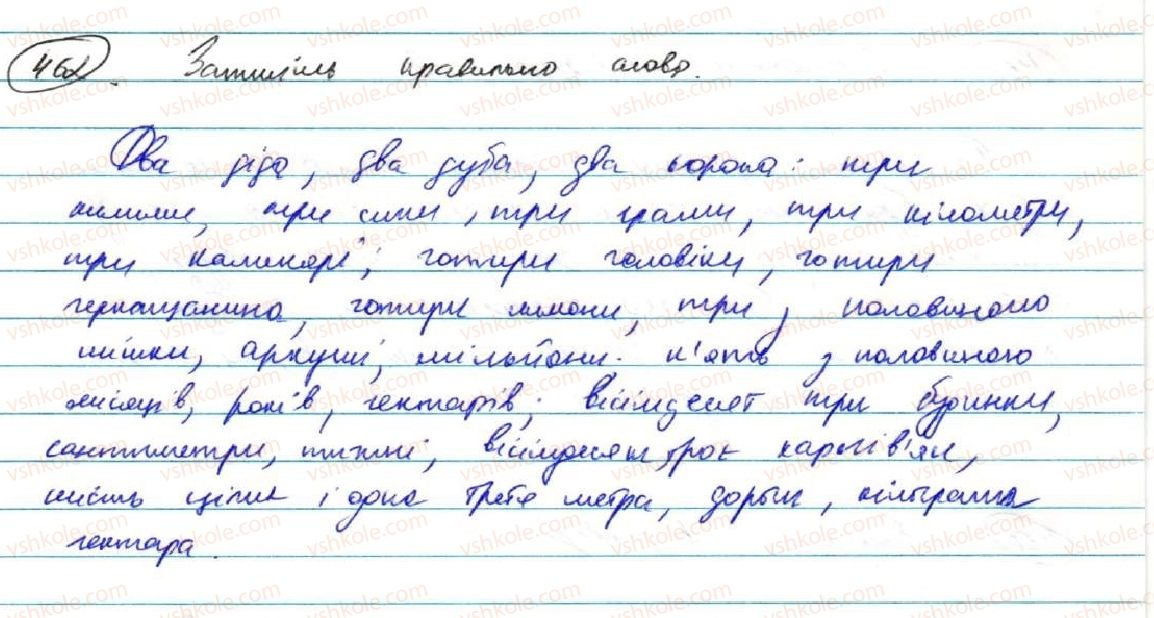 462. Запишіть правильно слова.
Два діда, два дуба, два сорока: три
килими, три сини, три грами, три кілометри,
три календарі; чотири чоловіки, чотири
чернщанина, чотири лимони, три з половиною
мішки, аркуші, мільйони: п'ять з половиною
місяців, років, гектарів; вісімдесят три будинки,
сантиметри, тижні, вісімдесят трое харків'ян,
шість цілих і одна третя метра,
гектара.